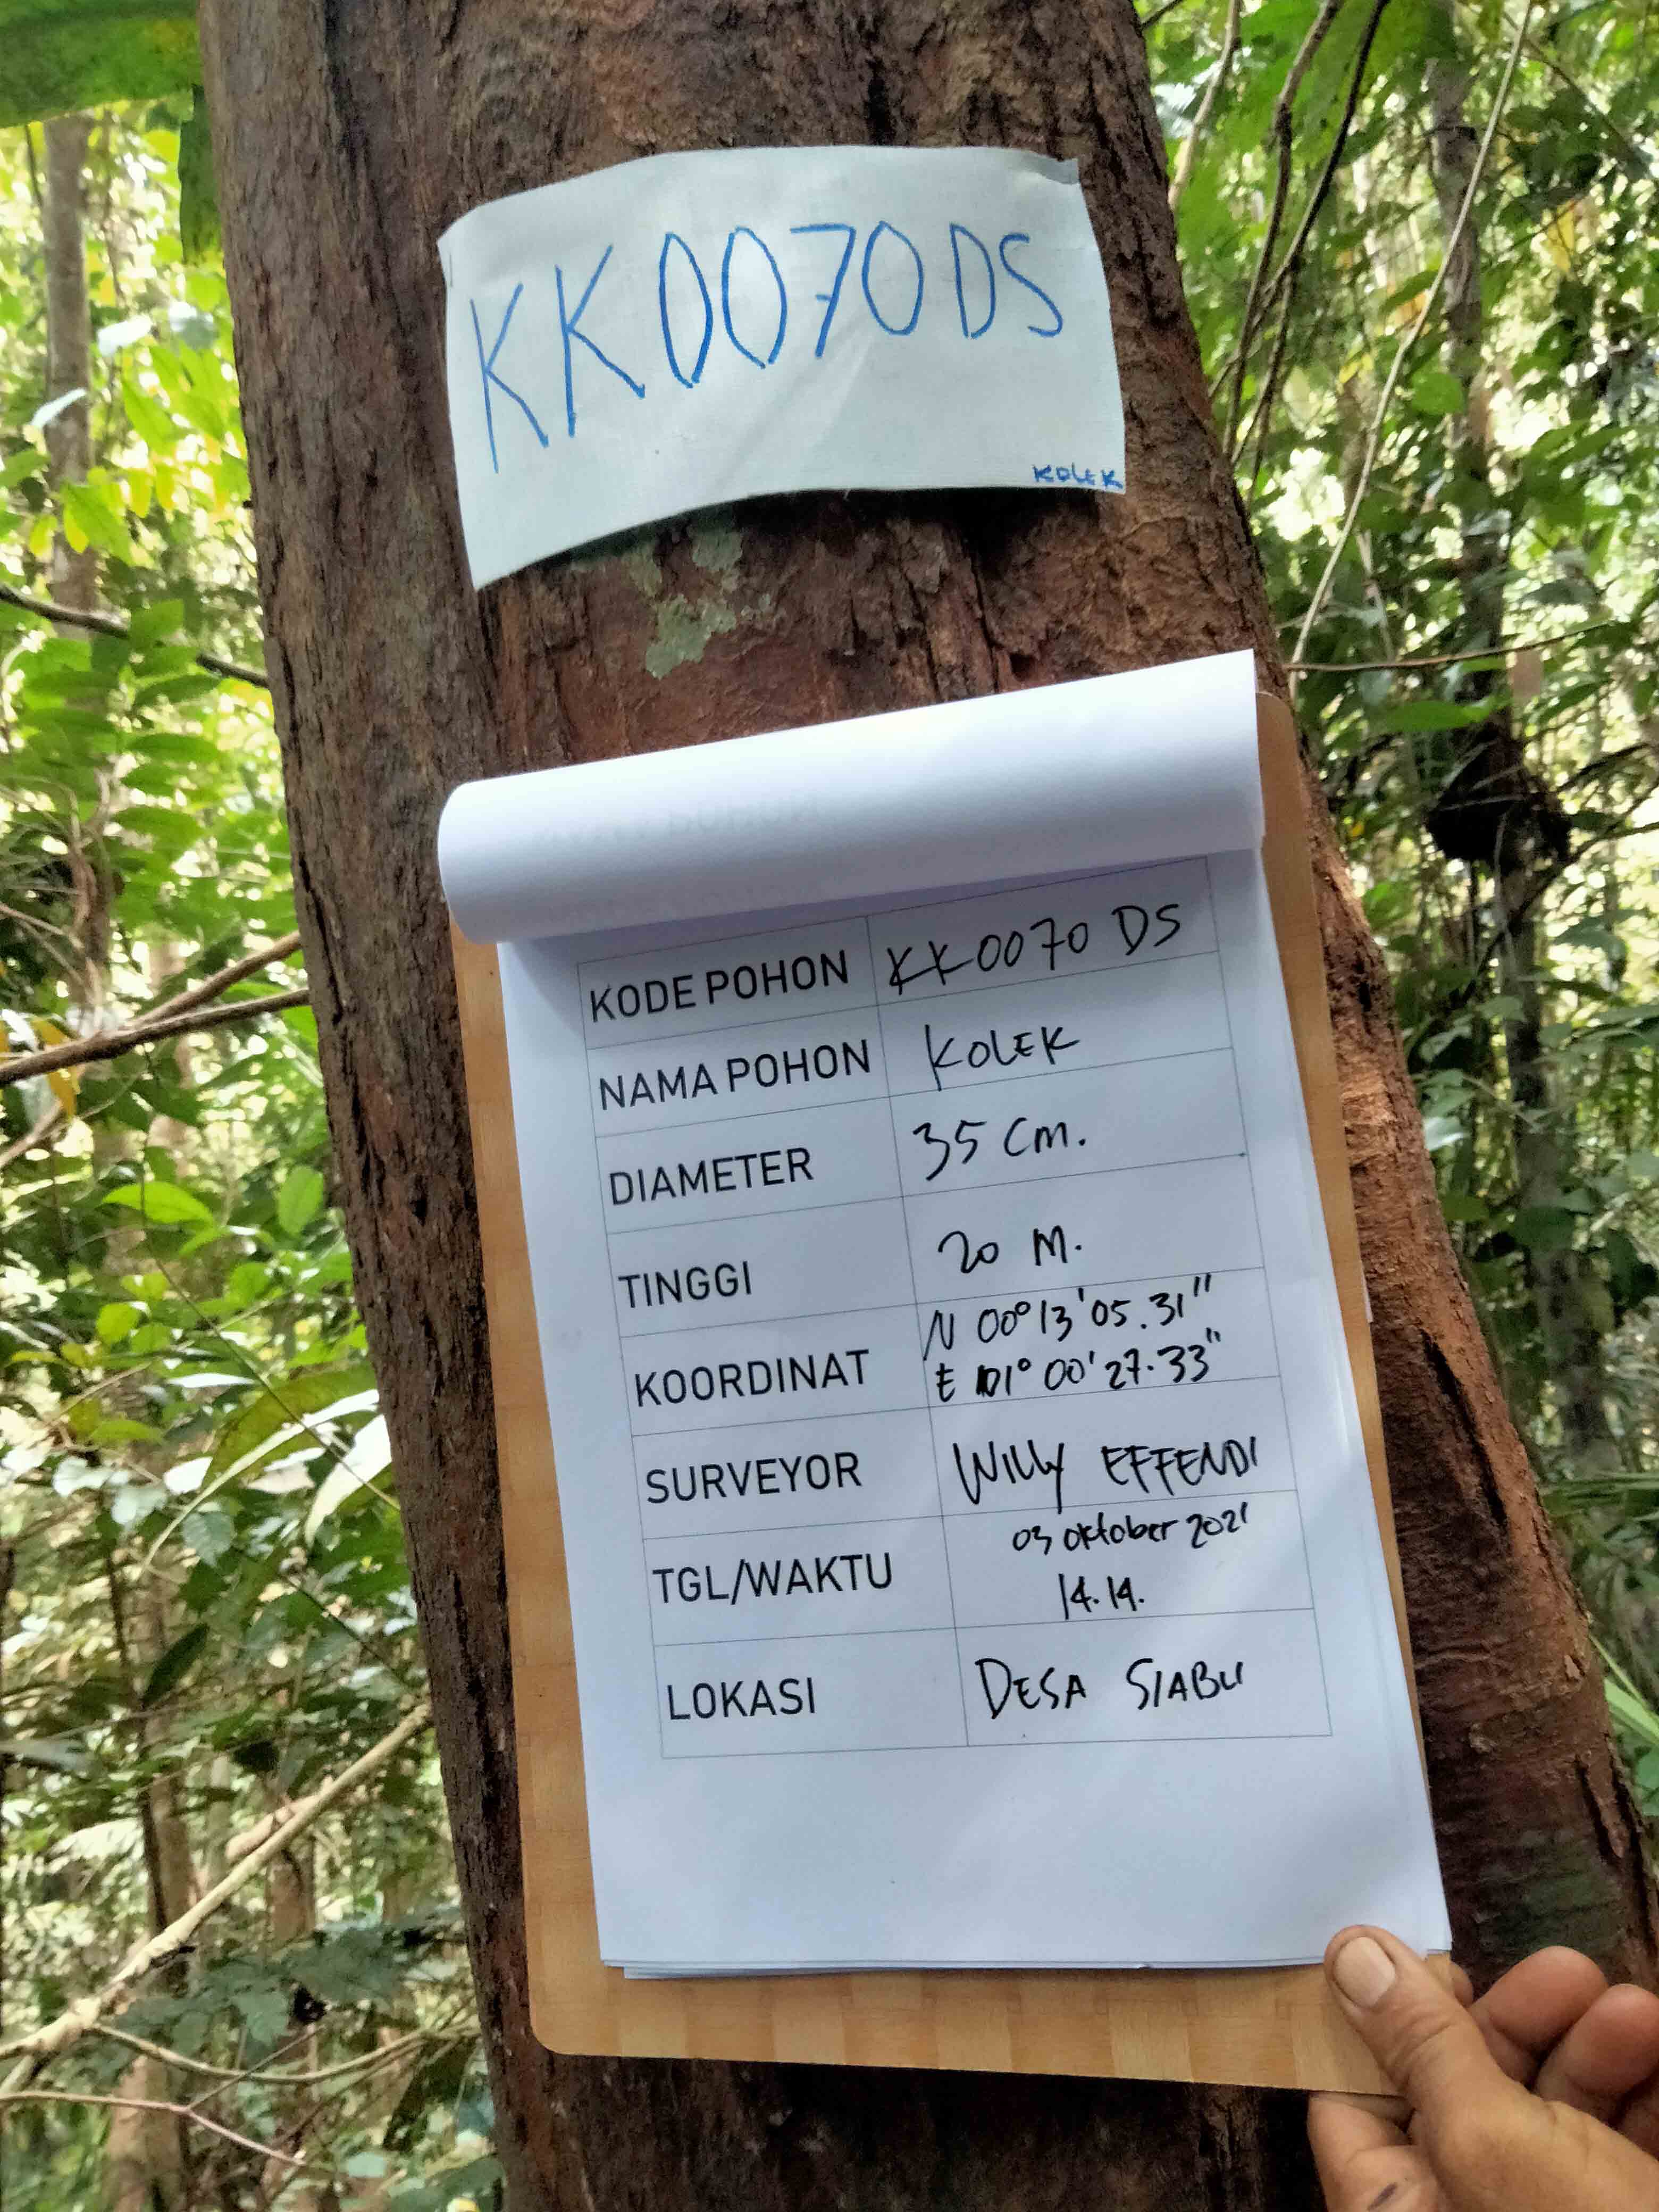 KK0070DS
KOLEK
KODE POHON KK0070 DS
NAMA POHON KOLEK
DIAMETER 35 cm.
TINGGI 20 M.
KOORDINAT N 00°13'05.31"
E 101°00'27.33"
SURVEYOR WILLY EFFENDI
TGL/WAKTU 03 oktober 2021
14.14.
LOKASI DESA SIABU